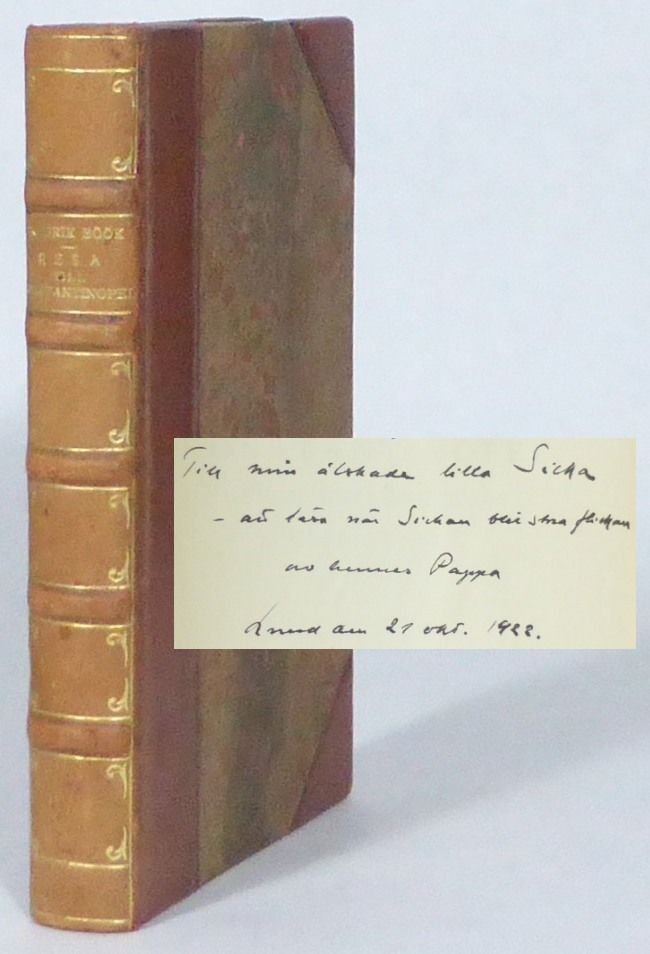 FREDRIK BÖÖK
RESA
TILL
KONSTANTINOPEL
Till min älskade lilla Sicka
– att läsa när Sickan blir stora flickan
av hennes Pappa
Lund den 21 okt. 1922.